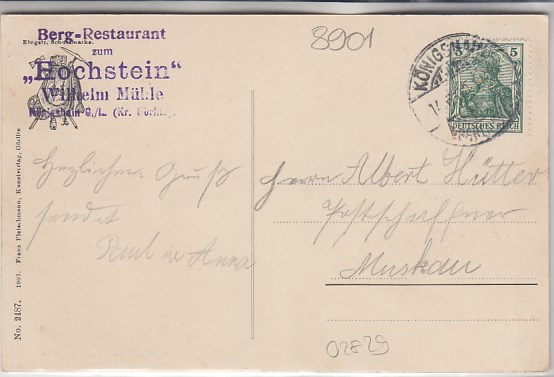 Berg-Restaurant
zum
„Hochstein“
Wilhelm Mühle
Königshain O./L. (Kr. Görlitz)
Eingetr. Schutzmarke.
8901
KÖNIGSHAIN
5
DEUTSCHES REICH
Herzlichen Gruß
sendet
Paul u Anna
Herrn Albert Hütter
Postschaffner
Muskau
02829
No. 2487. 1907. Franz Pietschmann, Kunstverlag, Görlitz